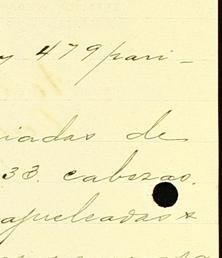 y 479 pari-
iadas de
33. cabezas.
apuleadas &